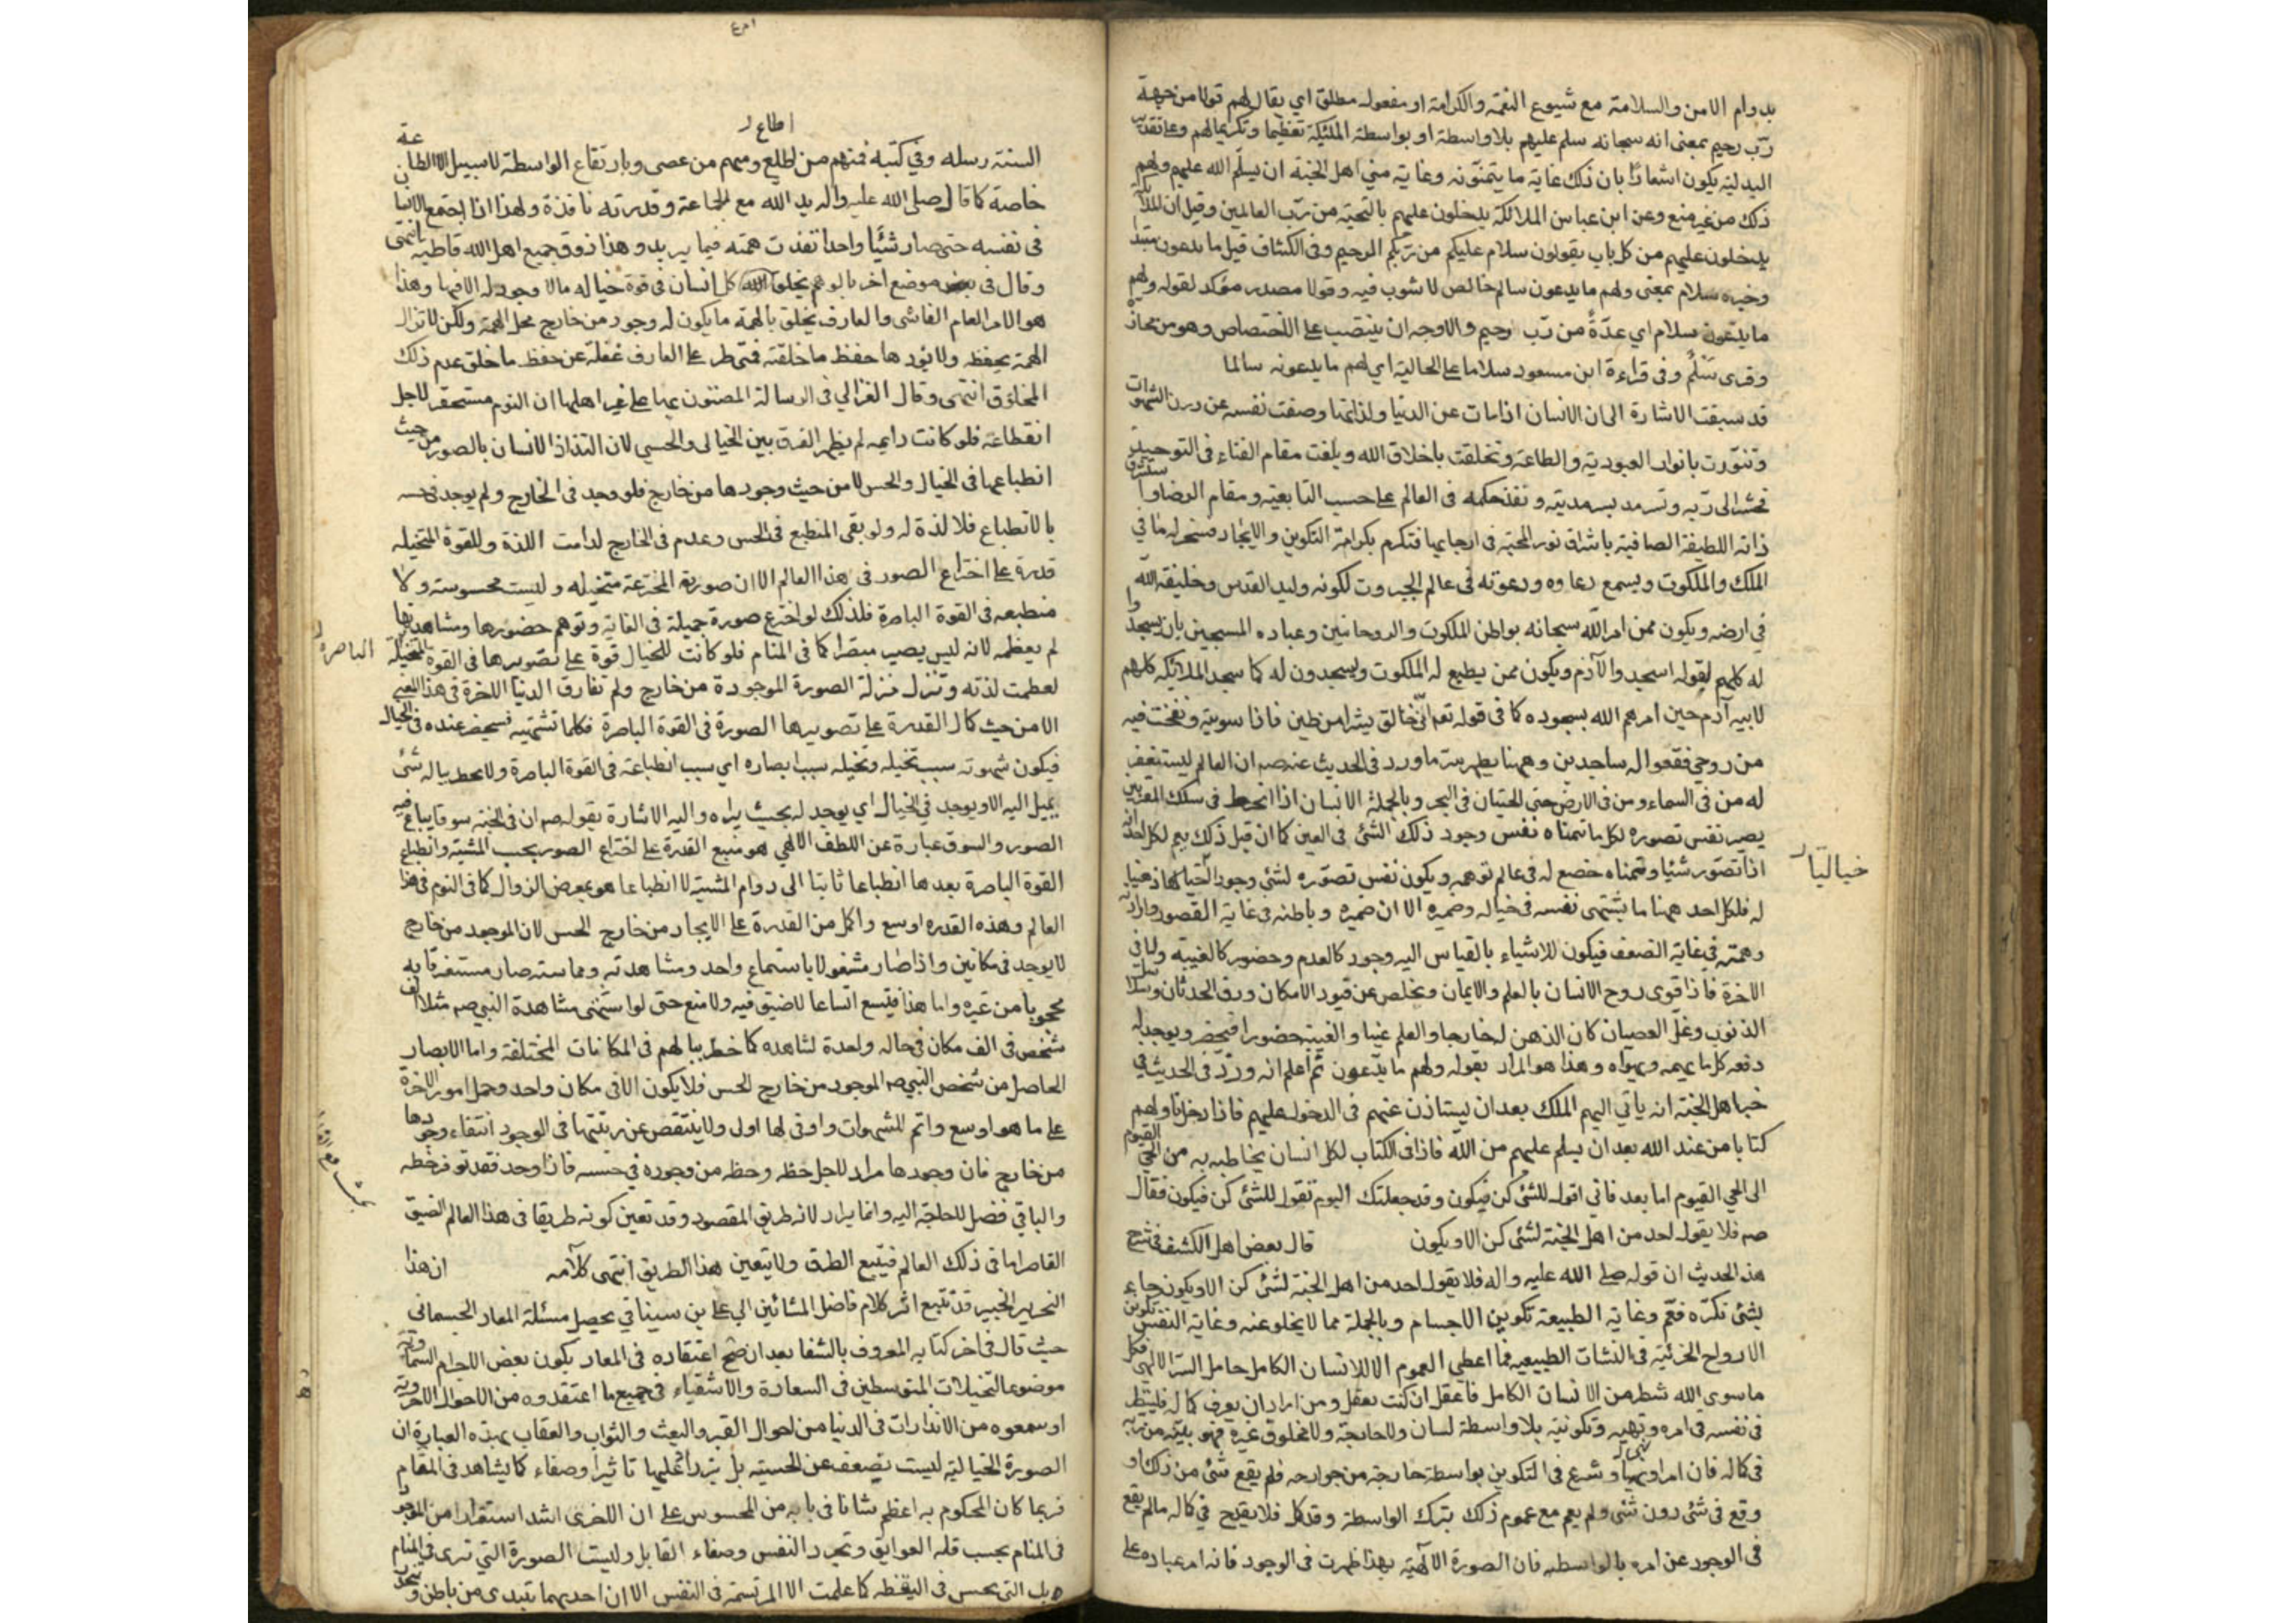 بدوام الامن والسلامة مع شيوع النعمة والكرامة او مفعول مطلق اي يقال لهم قولا من جهة
ربّ رحيم بمعنى انه سبحانه سلم عليهم بلا واسطة او بواسطة الملئكة تعظيما وتكريما لهم وعلى تقدير
البدلية يكون اشعارًا بان ذلك غاية ما يتمنّونه وغاية منى اهل الجنة ان يسلّم الله عليهم ولهم
ذلك من غير منع وعن ابن عباس الملائكة يدخلون عليهم بالتحية من ربّ العالمين وقيل ان الملائكة
يدخلون عليهم من كل باب يقولون سلام عليكم من ربّكم الرحيم وفي الكشاف قيل ما يدعون مبتدا
وخبره سلام بمعنى ولهم ما يدعون سالم خالص لا شوب فيه وقولا مصدر مؤكد لقوله ولهم
ما يدّعون سلام اي عدّةً من ربّ رحيم والاوجه ان ينتصب على الاختصاص وهو من مجازه
وقرى سَلْمٌ وفى قراءة ابن مسعود سلاما على الحالية اي لهم ما يدعونه سالما
قد سبقت الاشارة الى ان الانسان اذا مات عن الدنيا ولذاتها وصفت نفسه عن درن الشهوات
وتنوّرت بانوار العبودية والطاعة وتخلقت باخلاق الله وبلغت مقام الفناء فى التوحيد
فحشر الى ربّه وتسرمد بسرمديته ونفذ حكمه فى العالم على حسب التابعية ومقام الرضا واستشرق
ذاته اللطيفة الصافية باشراق نور المحبة فى ارجايها فتكرم بكرامة التكوين والايجاد فسخر له ما في
الملك والملكوت ويسمع دعاوه ودعوته فى عالم الجبروت لكونه وليد القدس وخليفة الله
في ارضه ويكون ممن امر اللّه سبحانه بواطن الملكوت والروحانيين وعباده المسبحين بان يسجدوا
له كلهم لقوله اسجدوا لآدم ويكون ممن يطيع له الملكوت ويسجدون له كما سجد الملائكة كلهم
لابيه آدم حين امرهم الله بسجوده كما فى قوله تعم انّى خالق بشرا من طين فاذا سويته ونفخت فيه
من روحي فقعوا له ساجدين وههنا يظهر سرّ ما ورد فى الحديث عنه صم ان العالم ليستغفر
له من فى السماء ومن فى الارض حتى الحيتان فى البحر وبالجملة الانسان اذا انخرط فى سلك المقربين
يصير نفس تصوره لكل ما تمناه نفس وجود ذلك الشئ فى العين كما ان قبل ذلك يتم لكل احد انه
اذا تصوّر شيئا وتمناه خضع له فى عالم توهمه ويكون نفس تصوّره لشئ وجودا خياليا ذهنيا
خياليّا
له فلكل احد ههنا ما يشتهى نفسه فى خياله وضميره الا ان ضميره وباطنه فى غاية القصور وارادته
وهمته في غاية الضعف فيكون للاشياء بالقياس اليه وجود كالعدم وحضور كالغيبة واما في
الاخرة فاذا قوى روح الانسان بالعلم والايمان وتخلص عن قيود الامكان ورق الحدثان وسلاسل
الذنوب وغلّ العصيان كان الذهن له خارجا والعلم عينا والغيب حضورا فيحضر ويوجد له
دفعه كل ما يهمه ويهواه وهذا هو المراد بقوله ولهم ما يدّعون ثم أعلم انه ورد فى الحديث في
خبر اهل الجنة انه ياتى اليهم الملك بعد ان يستاذن عنهم فى الدخول عليهم فاذا دخل ناولهم
كتابا من عند الله بعد ان يسلم عليهم من اللّه فاذا فى الكتاب لكل انسان يخاطبه به من الحي القيوم
الى الحي القيوم اما بعد فانى اقول للشئ كن فيكون وقد جعلتك اليوم تقول للشئ كن فيكون فقال
صم فلا يقول احد من اهل الجنة لشئ كن الا ويكون قال بعض اهل الكشف فى شرح
هذا الحديث ان قوله صلى الله عليه واله فلا يقول احد من اهل الجنة لشئ كن الا ويكون جاء
بشئ نكرّه فعّم وغاية الطبيعة تكوين الاجسام وبالجملة مما لا يخلو عنه وغاية النفس تكوين
الارواح الجزئية فى النشات الطبيعيه فما اعطي العموم الا للانسان الكامل حامل السرّ الالهي فكل
ما سوى الله شطر من الانسان الكامل فاعقل ان كنت تعقل ومن اراد ان يعرف كماله فلينظر
فى نفسه فى امره ونهيه وتكوينه بلا واسطة لسان ولا جارحة ولا مخلوق غيره فهو بيّنه من ربّه
فى كماله فان امر او نهى او شرع فى التكوين بواسطة جارحة من جوارحه فلم يقع شئ من ذلك او
وقع فى شئ دون شئ ولم يعم مع عموم ذلك بترك الواسطة وقد كمل فلا يقدح في كماله مالم يقع
فى الوجود عن امره بالواسطه فان الصورة الالهية بهذا ظهرت فى الوجود فانه امر عباده على
اطاع
السنة رسله وفي كتبه فمنهم من اطاع ومنهم من عصى وبارتفاع الواسطة لا سبيل الا الطاعة
خاصة كما قال صلى الله عليه واله يد اللّه مع الجماعة وقدرته نافذة ولهذا اذا اجتمع الانسان
فى نفسه حتى صار شيئًا واحدا نفذت همته فيما يريد وهذا ذوق جميع اهل الله قاطبة انتهى
وقال فى موضع اخر بالوهم يخلق كل انسان فى قوة خياله ما لا وجود له الا فيها وهذا
هو الامر العام الفاشى والعارف يخلق بالهمة ما يكون له وجود من خارج محل الهمة ولكن لا تزال
الهمة تحفظه ولا يؤدها حفظ ما خلقته فمتى طر على العارف غفلة عن حفظ ما خلق عدم ذلك
المخلوق انتهى وقال الغزالي فى الرسالة المضنون بها على غير اهلها ان النوم مستحقر لاجل
انقطاعه فلو كانت دايمه لم يظهر الفرق بين الخيالى والحسي لان التذاذ الانسان بالصور من حيث
انطباعها فى الخيال والحس لا من حيث وجودها من خارج فلو وجد فى الخارج ولم يوجد فى حسه
بالانطباع فلا لذة له ولو بقى المنطبع فى الحس وعدم فى الخارج لدامت اللذة وللقوة المتخيله
قدرة على اختراع الصور فى هذا العالم الا ان صورته المخترعة متخيله وليست محسوسة ولا
منطبعه فى القوة الباصرة فلذلك لو اخترع صورة جميلة فى الغاية وتوهم حضورها ومشاهدتها
لم يعظمه لانه ليس يصير مبصرا كما فى المنام فلو كانت للخيال قوة على تصويرها فى القوة المتخيلة
الباصرة
لعظمت لذته وتنزل منزلة الصورة الموجودة من خارج ولم تفارق الدنيا الاخرة فى هذا المعنى
الا من حيث كمال القدرة على تصويرها الصورة فى القوة الباصرة فكلما تشتهيه فسيحضر عنده فى الخيال
فيكون شهوته سبب تخيله وتخيله سبب ابصاره اي سبب انطباعه فى القوة الباصرة ولا يخطر بباله شئ
يميل اليه الا ويوجد فى الخيال اي يوجد له بحيث يراه واليه الاشارة بقوله صم ان فى الجنة سوقا يباع فيه
الصور والسوق عبارة عن اللطف الالهي هو منبع القدرة على اختراع الصور بحسب المشية وانطباع
القوة الباصرة بعدها انطباعا ثابتا الى دوام المشية لا انطباعا هو بمعرض الزوال كما فى النوم فى هذا
العالم وهذه القدره اوسع واكمل من القدرة على الايجاد من خارج الحس لان الموجود من خارج
لا يوجد فى مكانين واذا صار مشغولا باستماع واحد ومشاهدته ومماسته صار مستغرقا به
محجوبا من غيره واما هذا فيتسع اتساعا لا ضيق فيه ولا منع حتى لو استهى مشاهدة النبي صم مثلا الف
شخص فى الف مكان فى حاله واحدة لشاهده كما خطر ببالهم فى المكانات المختلفة واما الابصار
الحاصل من شخص النبي صم الموجود من خارج الحس فلا يكون الا فى مكان واحد وحمل امور الاخرة
على ما هو اوسع واتم للشهوات واوفى لها اولى ولا ينتقص عن رتبتها فى الوجود انتفاء وجودها
من خارج فان وجودها مراد لاجل حظه وحظه من وجوده فى حسه فاذا وجد فقد توفر حظه
والباقي فضل لا حاجة اليه وانما يراد لانه طريق المقصود وقد تعين كونه طريقا فى هذا العالم الضيق
القاصر اما فى ذلك العالم فيتسع الطرق ولا يتعين هذا الطريق انتهى كلامه ان هذا
النحرير الخبير قد تتبع اثر كلام فاضل المشائين ابي على بن سينا فى تحصيل مسئلة المعاد الجسمانى
حيث قال فى اخر كتابه المعروف بالشفا بعد ان صحّ اعتقاده فى المعاد بكون بعض الاجرام السماوية
موضوعا لتخيلات المتوسطين فى السعادة والاشقياء فى جميع ما اعتقدوه من الاحوال الاخروية
او سمعوه من الانذارات فى الدنيا من احوال القبر والبعث والثواب والعقاب بهذه العبارة ان
الصورة الخيالية ليست تضعف عن الحسية بل تزداد عليها تاثيرا وصفاء كما يشاهد فى المقام
فربما كان المحكوم به اعظم شانا فى بابه من المحسوس على ان الاخرى اشد استقرارا من الموجود
فى المنام بحسب قلة العوايق وتجرد النفس وصفاء القابل وليست الصورة التي ترى في المنام
بل التى تحس فى اليقظه كما علمت الا المرتسمة فى النفس الا ان احديهما تبتدى من باطن وتنحدر